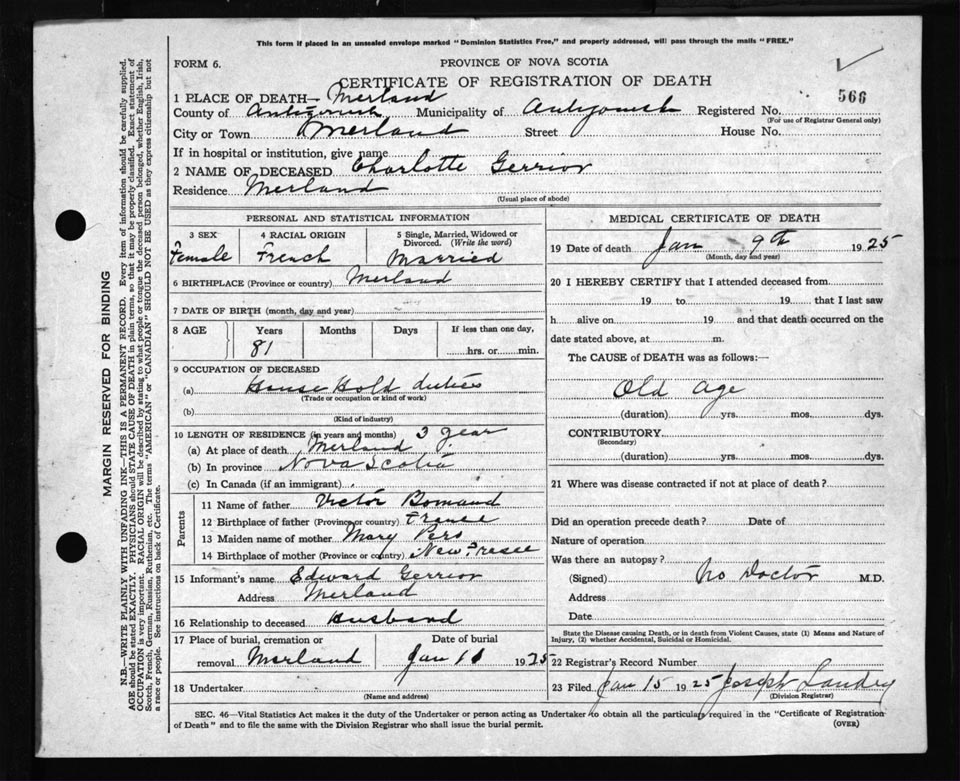 This form if placed in an unsealed envelope marked "Dominion Statistics Free," and properly addressed, will pass through the mails "FREE."
FORM 6.
PROVINCE OF NOVA SCOTIA
CERTIFICATE OF REGISTRATION OF DEATH
566
1 PLACE OF DEATH— Merland
County of Antigonish Municipality of Antigonish Registered No.
(For use of Registrar General only)
City or Town Merland Street House No.
If in hospital or institution, give name
2 NAME OF DECEASED Charlotte Gerrior
Residence Merland
(Usual place of abode)
PERSONAL AND STATISTICAL INFORMATION
3 SEX 4 RACIAL ORIGIN 5 Single, Married, Widowed or Divorced. (Write the word)
Female French Married
6 BIRTHPLACE (Province or country) Merland
7 DATE OF BIRTH (month, day and year)
8 AGE Years Months Days If less than one day,
81 hrs. or min.
9 OCCUPATION OF DECEASED
(a) House Hold duties
(Trade or occupation or kind of work)
(b)
(Kind of industry)
10 LENGTH OF RESIDENCE (in years and months) 3 year
(a) At place of death Merland
(b) In province Nova Scotia
(c) In Canada (if an immigrant)
Parents
11 Name of father Victor
12 Birthplace of father (Province or country)
13 Maiden name of mother Mary
14 Birthplace of mother (Province or country) New
15 Informant's name Edward Gerrior
Address Merland
16 Relationship to deceased Husband
17 Place of burial, cremation or removal Merland Date of burial Jan 11 1925
18 Undertaker
(Name and address)
MEDICAL CERTIFICATE OF DEATH
19 Date of death Jan 9th 1925
(Month, day and year)
20 I HEREBY CERTIFY that I attended deceased from
19 to 19 that I last saw
h alive on 19 and that death occurred on the
date stated above, at m.
The CAUSE of DEATH was as follows:—
Old age
(duration) yrs. mos. dys.
CONTRIBUTORY
(Secondary)
(duration) yrs. mos. dys.
21 Where was disease contracted if not at place of death?
Did an operation precede death? Date of
Nature of operation
Was there an autopsy?
(Signed) No Doctor M.D.
Address
Date
State the Disease causing Death, or in death from Violent Causes, state (1) Means and Nature of
Injury, (2) whether Accidental, Suicidal or Homicidal.
22 Registrar's Record Number
23 Filed Jan 15 1925 Joseph Landry
(Division Registrar)
SEC. 46—Vital Statistics Act makes it the duty of the Undertaker or person acting as Undertaker to obtain all the particulars required in the "Certificate of Registration
of Death" and to file the same with the Division Registrar who shall issue the burial permit. (OVER)
MARGIN RESERVED FOR BINDING
N.B.—WRITE PLAINLY WITH UNFADING INK—THIS IS A PERMANENT RECORD. Every item of information should be carefully supplied.
AGE should be stated EXACTLY. PHYSICIANS should STATE CAUSE OF DEATH in plain terms, so that it may be properly classified. Exact statement of
OCCUPATION is very important. RACIAL ORIGIN will be described by stating to what people or tongue the deceased person belonged, whether English, Irish,
Scotch, French, German, Russian, Ruthenian, etc. The terms "AMERICAN" or "CANADIAN" SHOULD NOT BE USED as they express citizenship but not
a race or people. See instructions on back of Certificate.